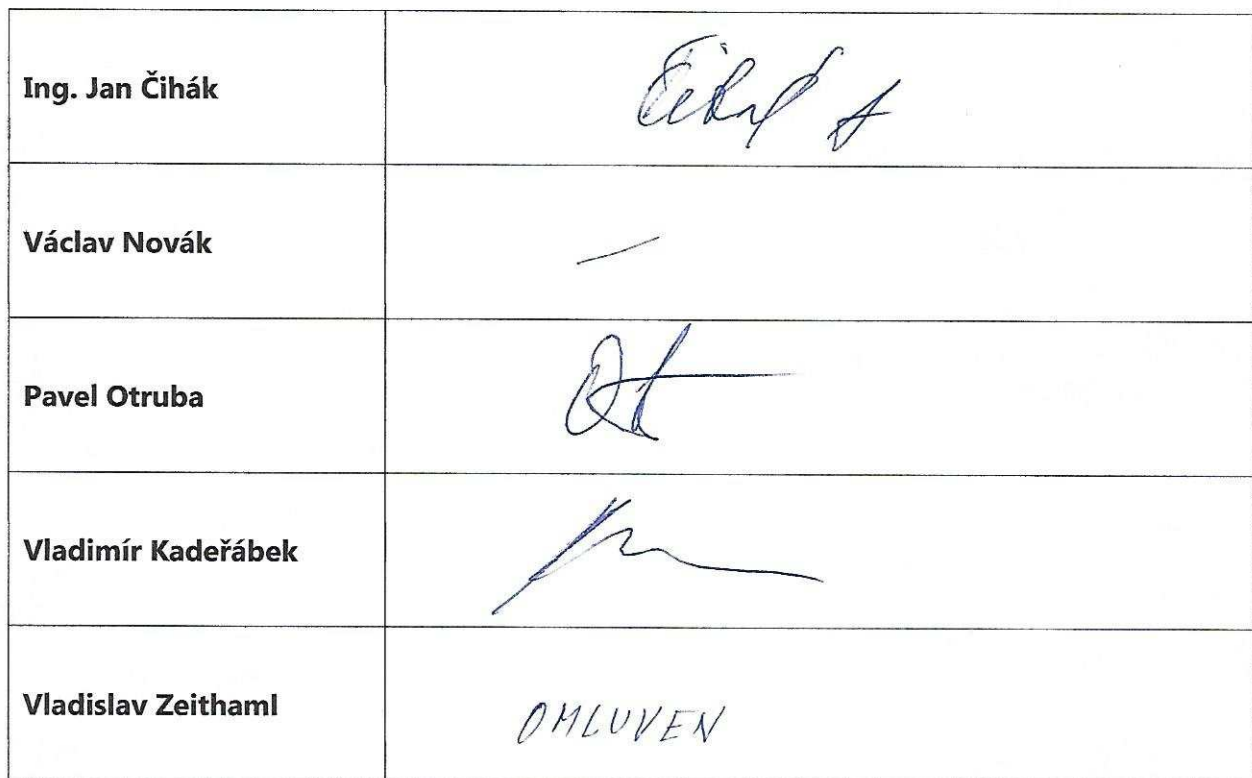 Ing. Jan Čihák
Václav Novák
—
Pavel Otruba
Vladimír Kadeřábek
Vladislav Zeithaml
OMLUVEN